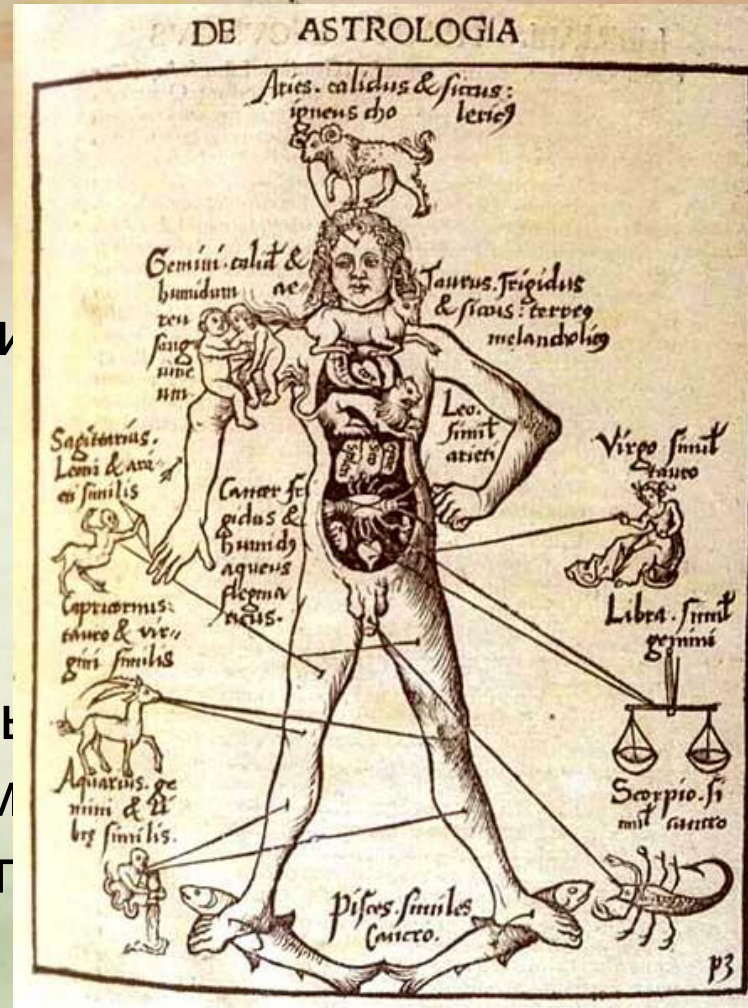 DE ASTROLOGIA
Aries. calidus & siccus:
igneus cho lericꝰ
Gemini. calid9 &
humidum ae-
reu
sang
uine
um.
Taurus. frigidus
& siccus: terreꝰ
melancholicꝰ
Leo.
simil
arieti
Virgo simil
tauro
Sagittarius.
Leoni & arie
ti similis
Cancer fri
gidus &
humidꝰ
aqueus
flegma
ticus.
Capricornus:
tauro & vir=
gini similis
Libra. simil
gemini
Aquarius. ge
mini & li
brę similis.
Scorpio. si
mil cancro
Pisces. similes
Cancro.
p3
и
ы
м